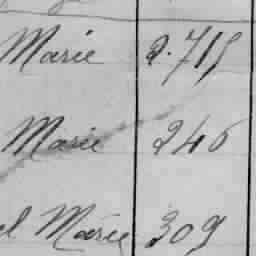 Marie 2.715
Marie 246
l Marie 309